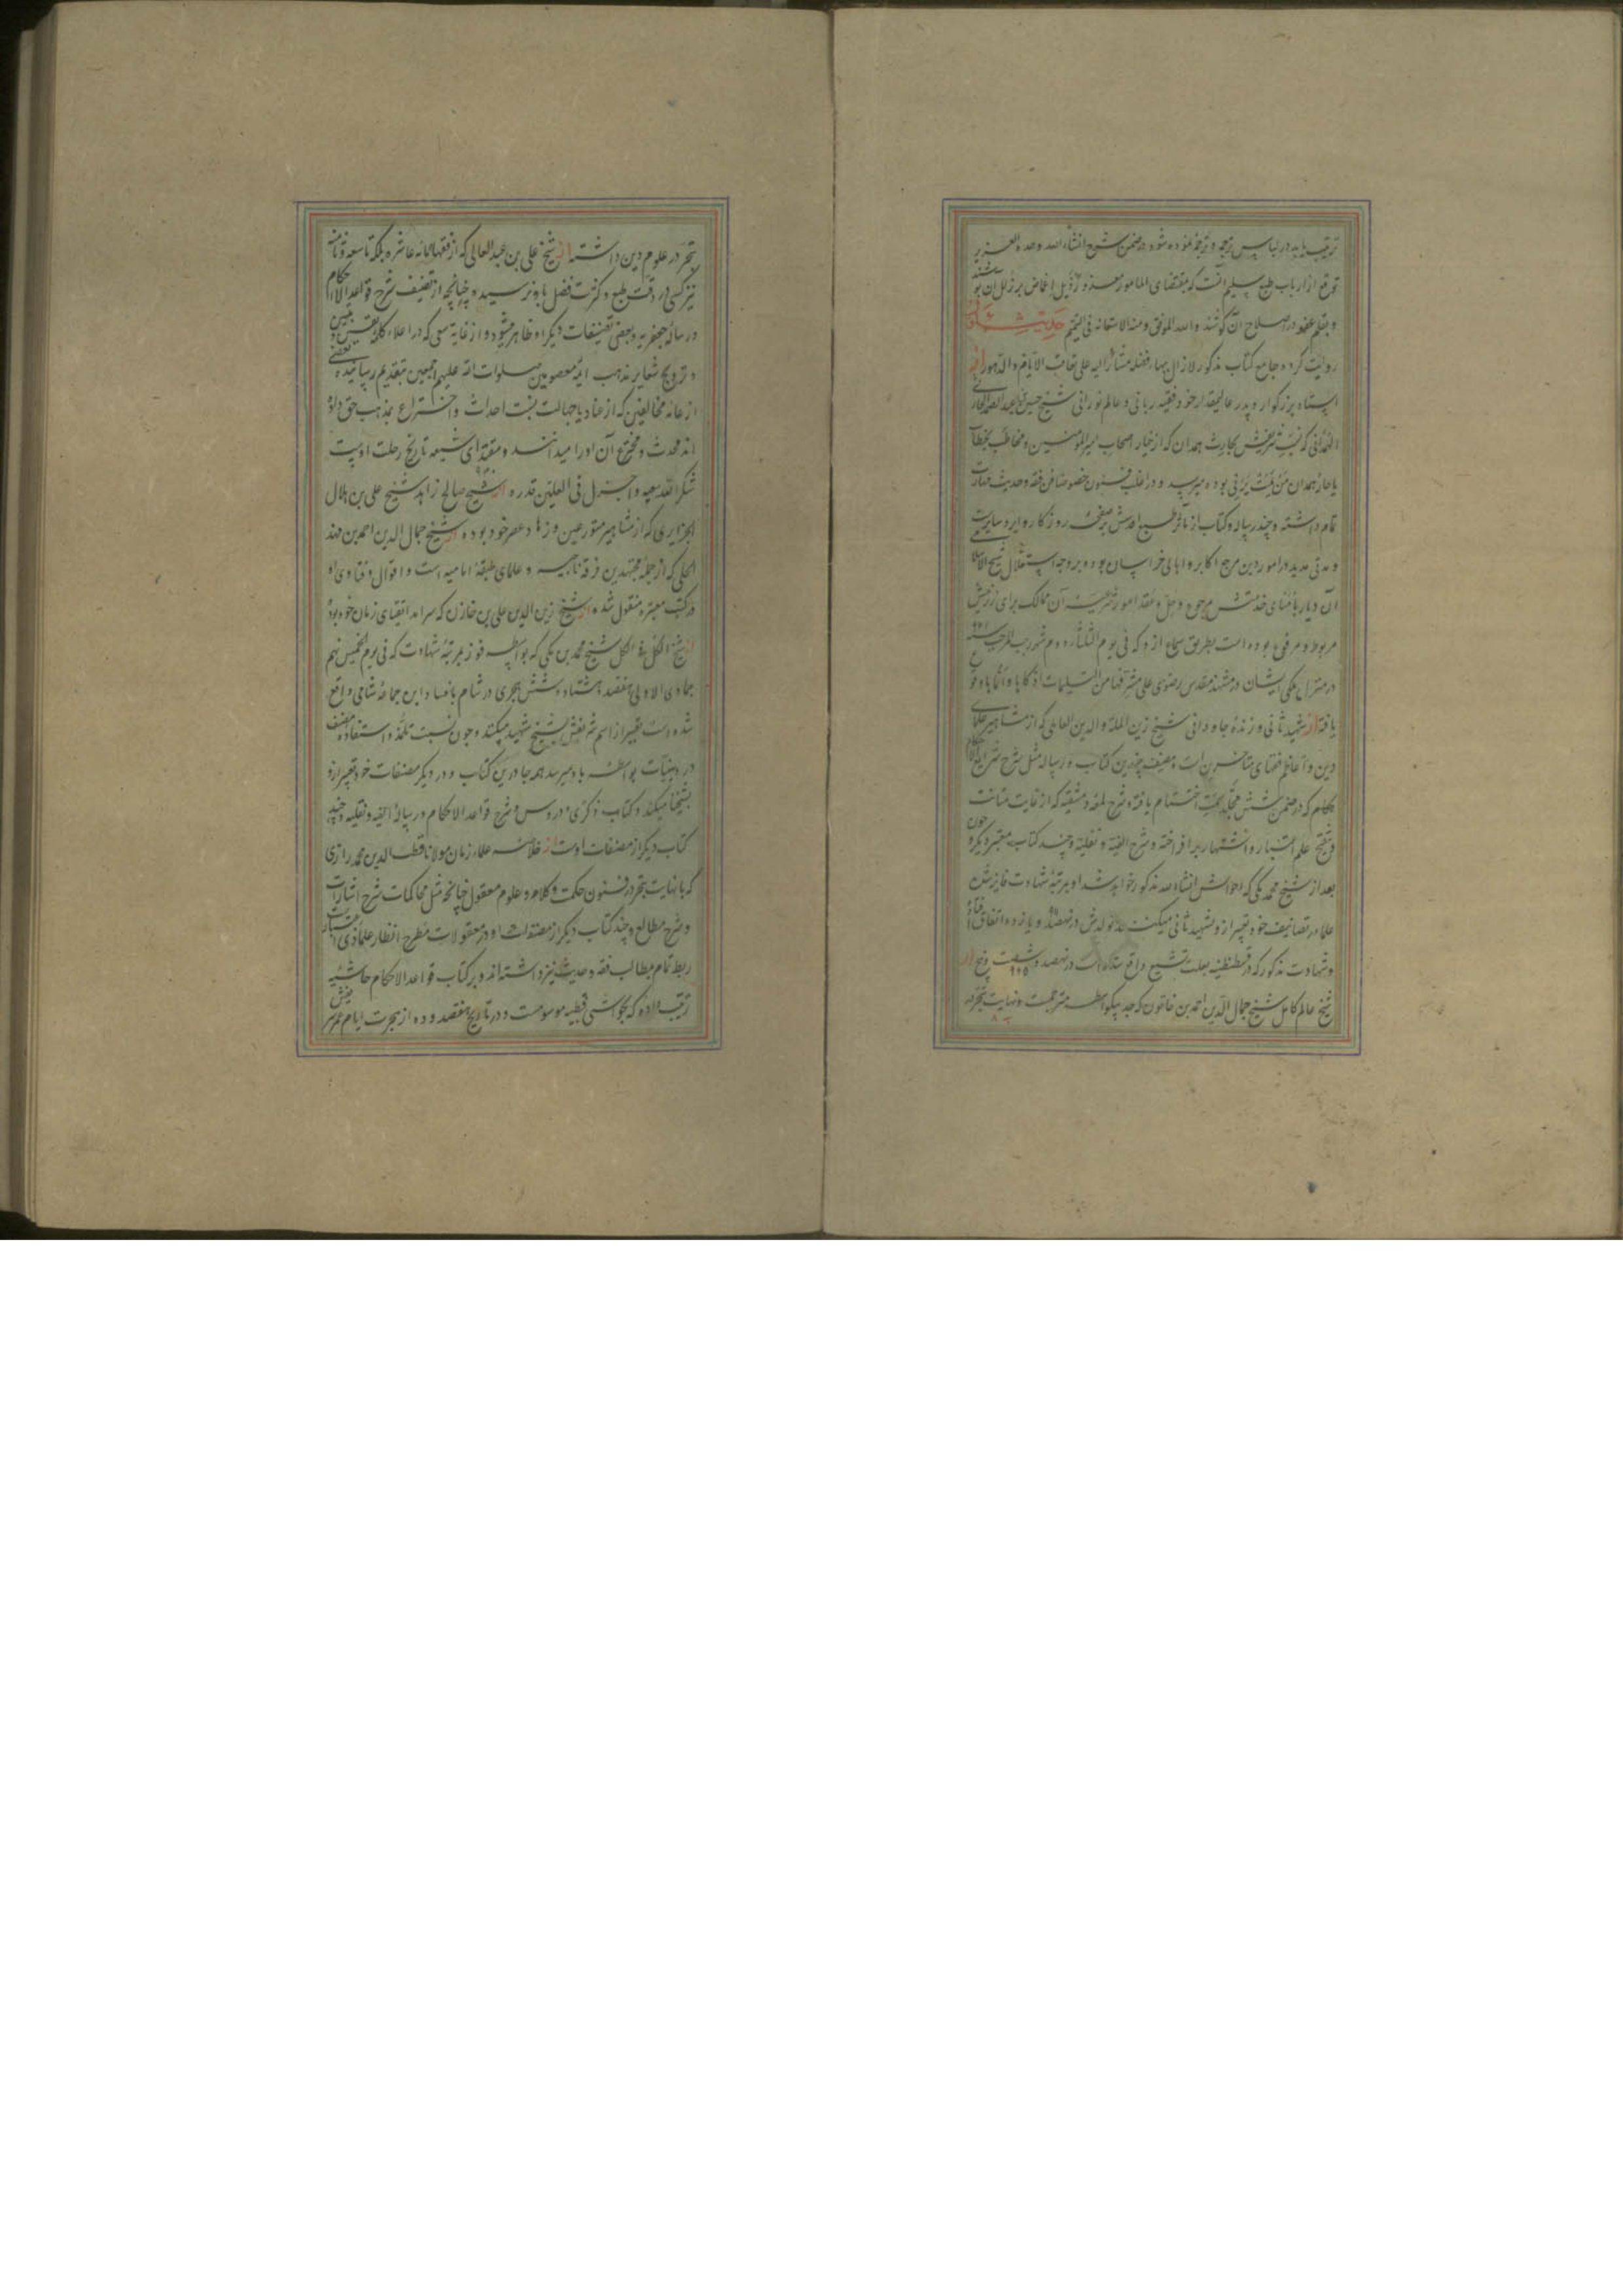 ترتیب یابد در لباس ترجمه و ترجمه نموده شود در ضمن شرح انشاء الله وحده العزیز
توقع از ارباب طبع سلیم آنست که بمقتضای المامور معذور ذیل اغماض بر زلل آن پوشند
و بقلم عفو در اصلاح آن کوشند و الله الموفق و منه الاستعانه فی التتمیم حدیث
روایت کرده جامع کتاب مذکور لازال بهار فضله مشارالیه علی تعاقب الایام و الدهور از
استاد بزرگوار و پدر عالیمقدار خود فقیه ربانی و عالم نورانی شیخ حسین بن عبدالصمد الحارثی
الهمدانی که نسب شریفش بحارث همدان که از خیار اصحاب امیرالمؤمنین و مخاطب بخطاب
یا حار همدان من یمت یرنی بوده میرسد و در اغلب فنون خصوصا فن فقه و حدیث مهارت
تمام داشته و چند رساله و کتاب از مآثر طبع اقدسش بر صفحه روزگار دایر و سایرست
و مدتی مدید در امور دین مرجع اکابر و اهالی خراسان بوده و بر وجه استقلال شیخ الاسلامی
آن دیار بامنای خدمتش مرجوع و حل و عقد امور شرعیه آن ممالک برای رزینش
مربوط و مرفوع بوده است بطریق سماع ازو که فی یوم الثلثاء دوم شهر رجب المرجب سنه ۹۷۱
در منزل ملکی ایشان در مشهد مقدس رضوی علی مشرفها من التسلیمات اذکاها و انماها وقوع
یافته از شهید ثانی و زنده جاودانی شیخ زین المله و الدین العاملی که از مشاهیر علمای
دین و اعاظم فقهای متاخرین است و مصنف چندین کتاب و رساله مثل شرح شرایع الاحکام
احکام که در ضمن شش مجلد سمت اختتام یافته و شرح لمعه دمشقیه که از غایت متانت
و تنقیح علم اعتبار و اشتهار برافراخته و شرح الفیه و نفلیه و چند کتاب معتبر دیگر و چون
بعد از شیخ محمد مکی که احوالش انشاء الله مذکور خواهد شد او بمرتبه شهادت فایز شده
علما در تصانیف خود تعبیر ازو بشهید ثانی میکنند تولدش در نهصد و یازده اتفاق افتاده
و شهادت مذکور که در قسطنطنیه بعلت تشیع واقع شده است در نهصد و شصت و پنج ۹۶۵ از
شیخ عالم کامل شیخ جمال الدین احمد بن خاتون که جد بیکواسطه مترجمست و نهایت تبحر در
تبحر در علوم دین داشته از شیخ علی بن عبدالعالی که از فقهای مائه عاشره بلکه تاسعه و ثامنه
نیز کسی در دقت طبع و کثرت فضل باو نرسیده چنانچه از تصنیف شرح قواعد الاحکام
و رساله جعفریه و بعضی تصنیفات دیگر او ظاهر میشود و از غایة سعی که در اعلاء کلمه
و ترویج شعایر مذهب ائمه معصومین صلوات الله علیهم اجمعین بتقدیم رسانیده بعضی
از عامه مخالفین که از عناد یا جهالت نسبت احداث و اختراع بمذهب حق داده
اند محدث و مخترع آن او را میدانند و مقتدای شیعه تاریخ رحلت اوست
شکر الله سعیه و اجزل فی العلیین قدره از شیخ صالح زاهد شیخ علی بن هلال
الجزایری که از مشاهیر متورعین و زهاد عصر خود بوده از شیخ جمال الدین احمد بن فهد
الحلی که از جمله مجتهدین فرقه ناجیه و علمای طبقه امامیه است و اقوال و فتاوی او
در کتب معتبره منقول شده از شیخ زین الدین علی بن خازن که سرآمد اتقیای زمان خود بوده
از شیخ الکل فی الکل شیخ محمد بن مکی که بواسطه فوز بمرتبه شهادت که فی یوم الخمیس نهم
جمادی الاولی هفتصد و هشتاد و شش هجری در شام بافساد ابن جماعه شامی واقع
شده است تعبیر از اسم شریفش بشیخ شهید میکنند و چون نسبت تلمذ و استفاده مصنف
در دینیات بواسطه باو میرسد همه جا درین کتاب و در دیگر مصنفات خود تعبیر ازو
بشیخنا میکند و کتاب ذکری و دروس و شرح قواعد الاحکام و رساله الفیه و نفلیه و چند
کتاب دیگر از مصنفات اوست از خلاصه علماء زمان مولانا قطب الدین محمد رازی
که با نهایت تبحر در فنون حکمت و کلام و علوم معقول چنانچه مثل محاکمات شرح اشارات
و شرح مطالع و چند کتاب دیگر از مصنفات او در معقولات مطرح انظار علماء ذی اعتبار
ربط تمام بمطالب فقه و حدیث نیز داشته اند و بر کتاب قواعد الاحکام حاشیه
ترتیب داده که بحواشی قطبیه موسومست و در تاریخ هفتصد و ده از هجرت ایام عمر